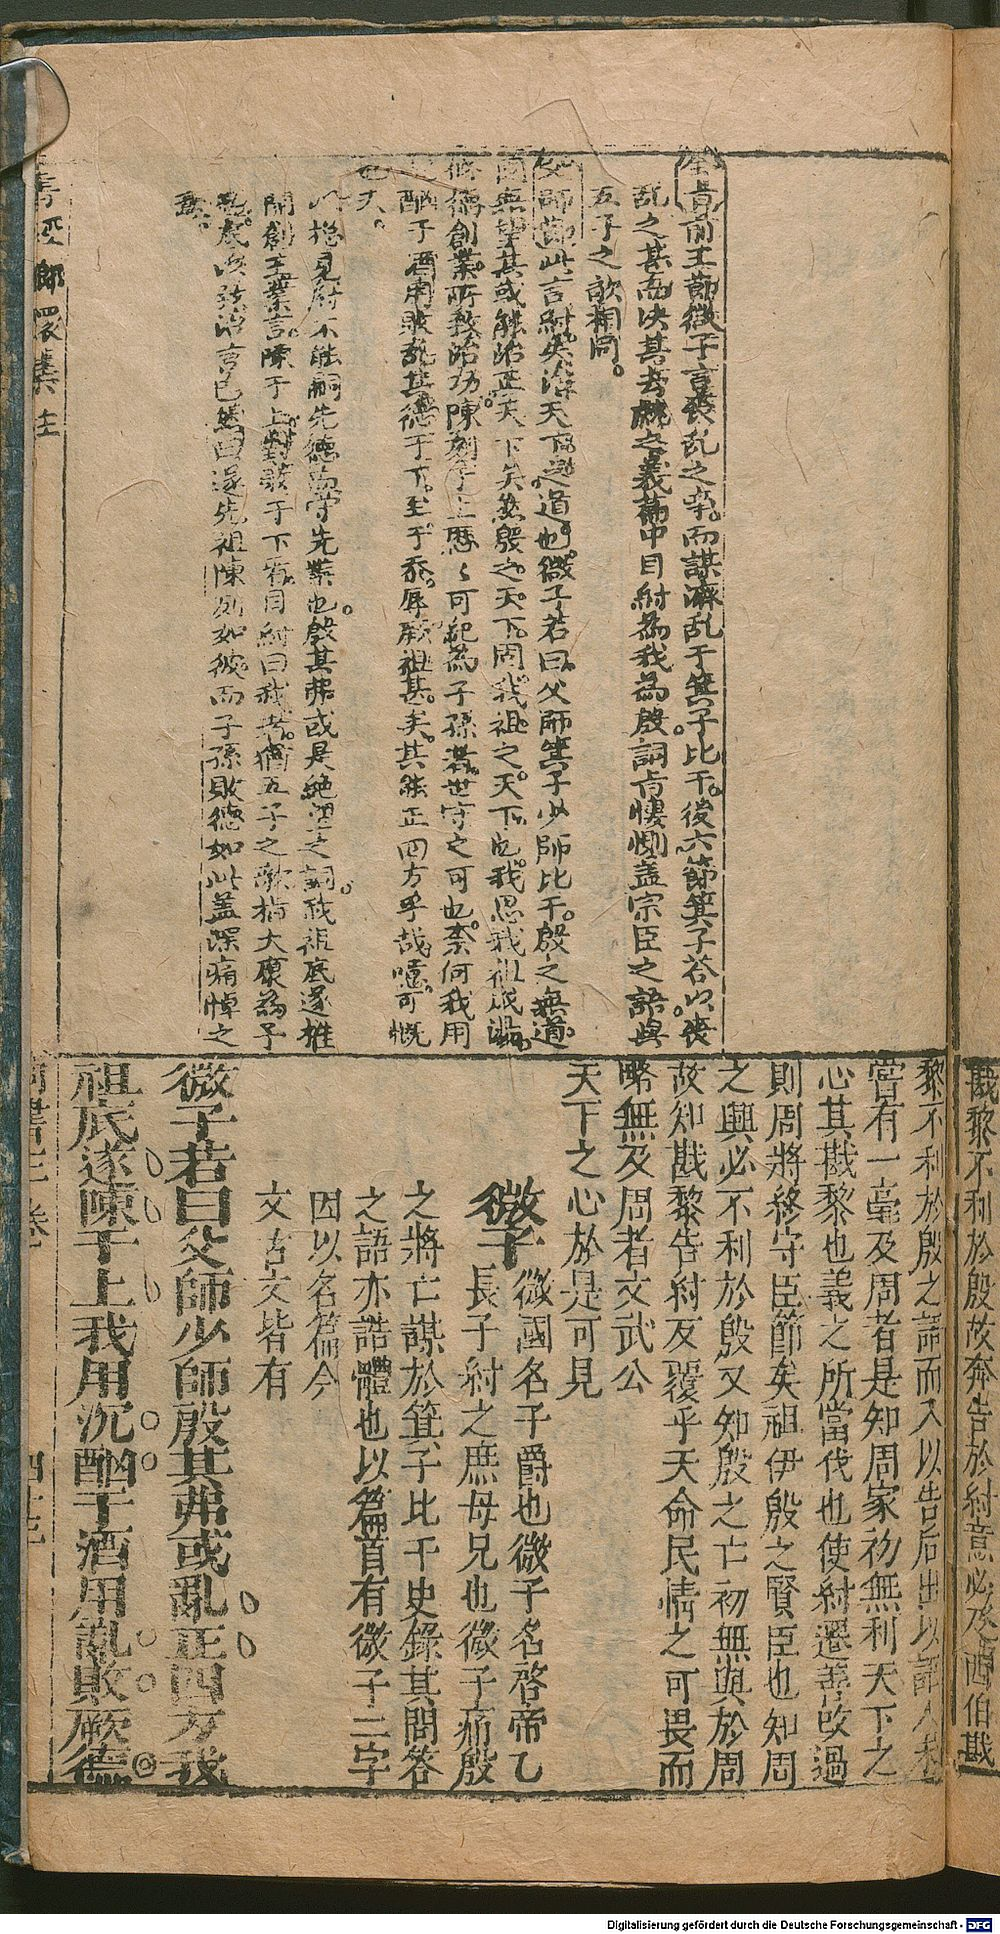 全旨前三節微子言喪乱之辛而謀濟乱于箕子比干後六節箕子荅以喪
乱之甚而决其去就之義篇中目紂為我為殷詞旨悽惻盖宗臣之語與
五子之歌相同
父師節此言紂失治天下之道也微子若曰父師箕子少師比干殷之無道
固無望其或能治正天下矣然殷之天下固我祖之天下也我思我祖成湯
修德創業所致治功陳列于上歷〻可紀為子孫者世守之可也柰何我用
酗于酒用敗乱其德于下至于忝辱厥祖甚矣其能正四方乎哉噫可慨
也夫
總見紂不能嗣先德而守先業也殷其弗或是絶望之詞我祖底遂推
開創王業言陳于上對敗于下看目紂曰我者猶五子之歌指大康為予
也底遂致治言已然曰遂先祖陳列如彼而子孫敗德如此盖深痛悼之
意
戡黎不利於殷故奔告於紂意必及西伯戡
黎不利於殷之語而入以告后出以語人未
嘗有一毫及周者是知周家初無利天下之
心其戡黎也義之所當伐也使紂遷善改過
則周將終守臣節矣祖伊殷之賢臣也知周
之興必不利於殷又知殷之亡初無與於周
故知戡黎告紂反覆乎天命民情之可畏而
略無及周者文武公
天下之心於是可見
微子 微國名子爵也微子名啓帝乙
長子紂之庶母兄也微子痛殷
之將亡謀於箕子比干史錄其問答
之語亦誥體也以篇首有微子二字
因以名篇今
文古文皆有
微子若曰父師少師殷其弗或亂正四方我
祖底遂陳于上我用沉酗于酒用亂敗厥德
Digitalisierung gefördert durch die Deutsche Forschungsgemeinschaft - DFG